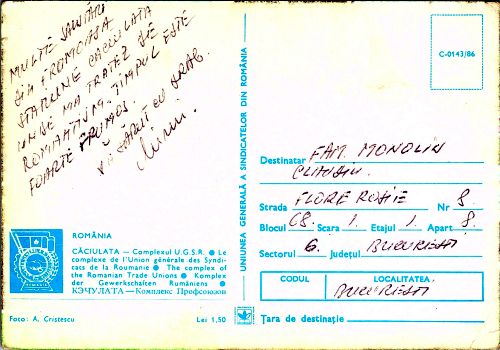 MULTE SALUTĂRI
DIN FRUMOASA
STAȚIUNE CACIULATA
UNDE MA TRATEZ DE
ROMANTISM. TIMPUL ESTE
FOARTE FRUMOS.
VĂ SĂRUT CU DRAG
ROMÂNIA
CĂCIULATA — Complexul U.G.S.R. ● Le
complexe de l'Union générale des Syndi-
cats de la Roumanie ● The complex of
the Romanian Trade Unions ● Komplex
der Gewerkschaften Rumäniens ●
КЭЧУЛАТА — Комплекс Профсоюзов
Foto: A. Cristescu
Lei 1,50
UNIUNEA GENERALĂ A SINDICATELOR DIN ROMÂNIA
C-0143/86
Destinatar FAM. MONOLIU
CLAUDIU
Strada FLORE ROȘIE Nr 8
Blocul 68 Scara 1 Etajul 1 Apart 8
Sectorul 6 Județul BUCUREȘTI
CODUL LOCALITATEA
BUCUREȘTI
Țara de destinație